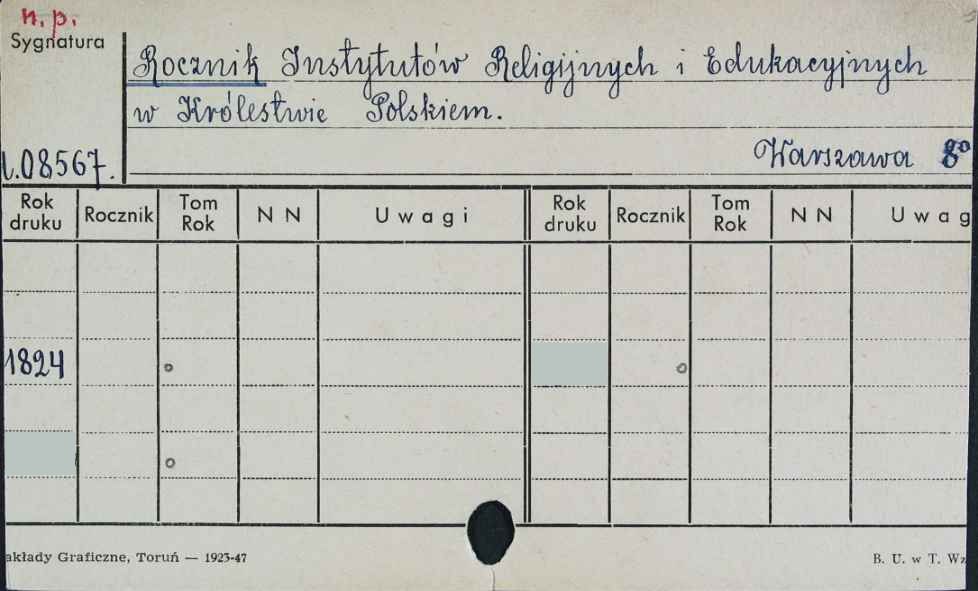 n. p.
Sygnatura
Rocznik Instytutów Religijnych i Edukacyjnych
w Królestwie Polskiem.
08567.
Warszawa 8°
Rok druku Rocznik Tom Rok N N Uwagi Rok druku Rocznik Tom Rok N N Uwag
1824
akłady Graficzne, Toruń — 1923-47
B. U. w T. Wz